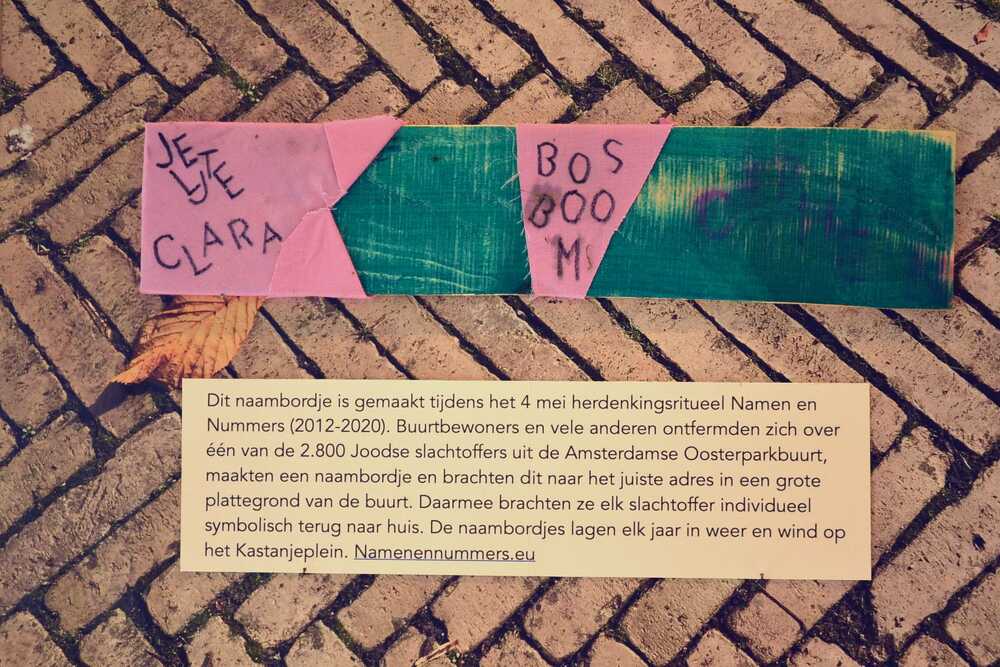 JE
LTJE
CLARA
BOS
BOO
M
Dit naambordje is gemaakt tijdens het 4 mei herdenkingsritueel Namen en
Nummers (2012-2020). Buurtbewoners en vele anderen ontfermden zich over
één van de 2.800 Joodse slachtoffers uit de Amsterdamse Oosterparkbuurt,
maakten een naambordje en brachten dit naar het juiste adres in een grote
plattegrond van de buurt. Daarmee brachten ze elk slachtoffer individueel
symbolisch terug naar huis. De naambordjes lagen elk jaar in weer en wind op
het Kastanjeplein. Namenennummers.eu